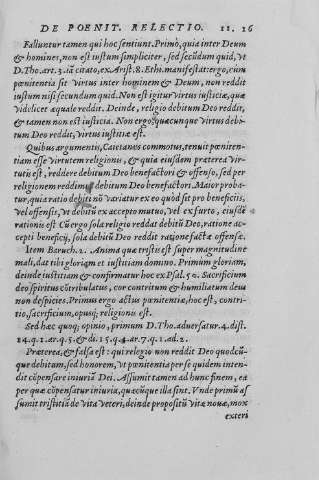 DE POENIT. RELECTIO. 11. 16
Falluntur tamen qui hoc sentiunt. Primò, quia inter Deum
& homines, non est iustum simpliciter, sed secũdum quid, vt
D. Tho. ar. 3. iã citato, ex. Arist. 8. Ethi. manifestat: ergo, cùm
pœnitentia sit virtus inter hominem & Deum, non reddit
iustum nisi secundum quid. Non est igitur virtus iusticiæ, quæ
videlicet æquale reddit. Deinde, religio debitum Deo reddit,
& tamen non est iusticia. Non ergo quæcunque virtus debi-
tum Deo reddit, virtus iustitiæ est.
Quibus argumentis, Caietanus commotus, tenuit pœniten-
tiam esse virtutem religionis, & quia eiusdem præterea vir-
tutis est, reddere debitum Deo benefactori & offenso, sed per
religionem reddimus debitum Deo benefactori. Maior proba-
tur, quia ratio debiti nõ variatur ex eo quòd sit pro beneficiis,
vel offensis, vt debitũ ex accepto mutuo, vel ex furto, eiusdẽ
rationis est Cũ ergo sola religio reddat debitũ Deo, ratione ac-
cepti beneficij, sola debitũ Deo reddit ratione factæ offensæ.
Item Boruch. 2. Anima quæ tristis est super magnitudine
mali, dat tibi gloriam et iustitiam domino. Primum gloriam,
deinde iustitiam & confirmatur hoc ex Psal. 50. Sacrificium
deo spiritus cõtribulatus, cor contritum & humiliatum deus
non despicies. Primus ergo actus pœnitentiæ, hoc est, contri-
tio, sacrificium, opusq; religionis est.
Sed hæc quoq; opinio, primum D. Tho. aduersatur. 4. dist.
14. q. 1. ar. q. 5. & di. 15. q. 4. ar. 7. q. 1. ad. 2.
Præterea, & falsa est: qui religio non reddit Deo quodcũ-
que debitum, sed honorem, vt pœnitentia per se quidem inten-
dit cõpensare iniuriã Dei. Assumit tamen ad hunc finem, ea
per quæ cõpensatur iniuria, quæcũque illa sint. Vnde primũ as
sumit tristitiã de vita veteri, deinde propositũ vitæ nouæ, mox
exteri